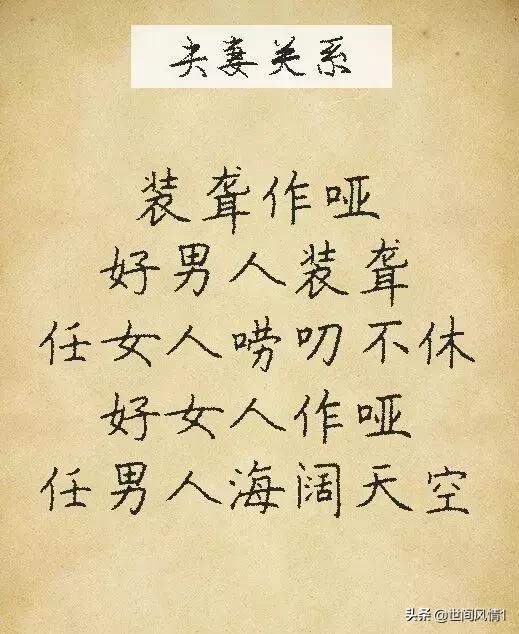 夫妻关系
装聋作哑
好男人装聋
任女人唠叨不休
好女人作哑
任男人海阔天空
头条 @世间风情1